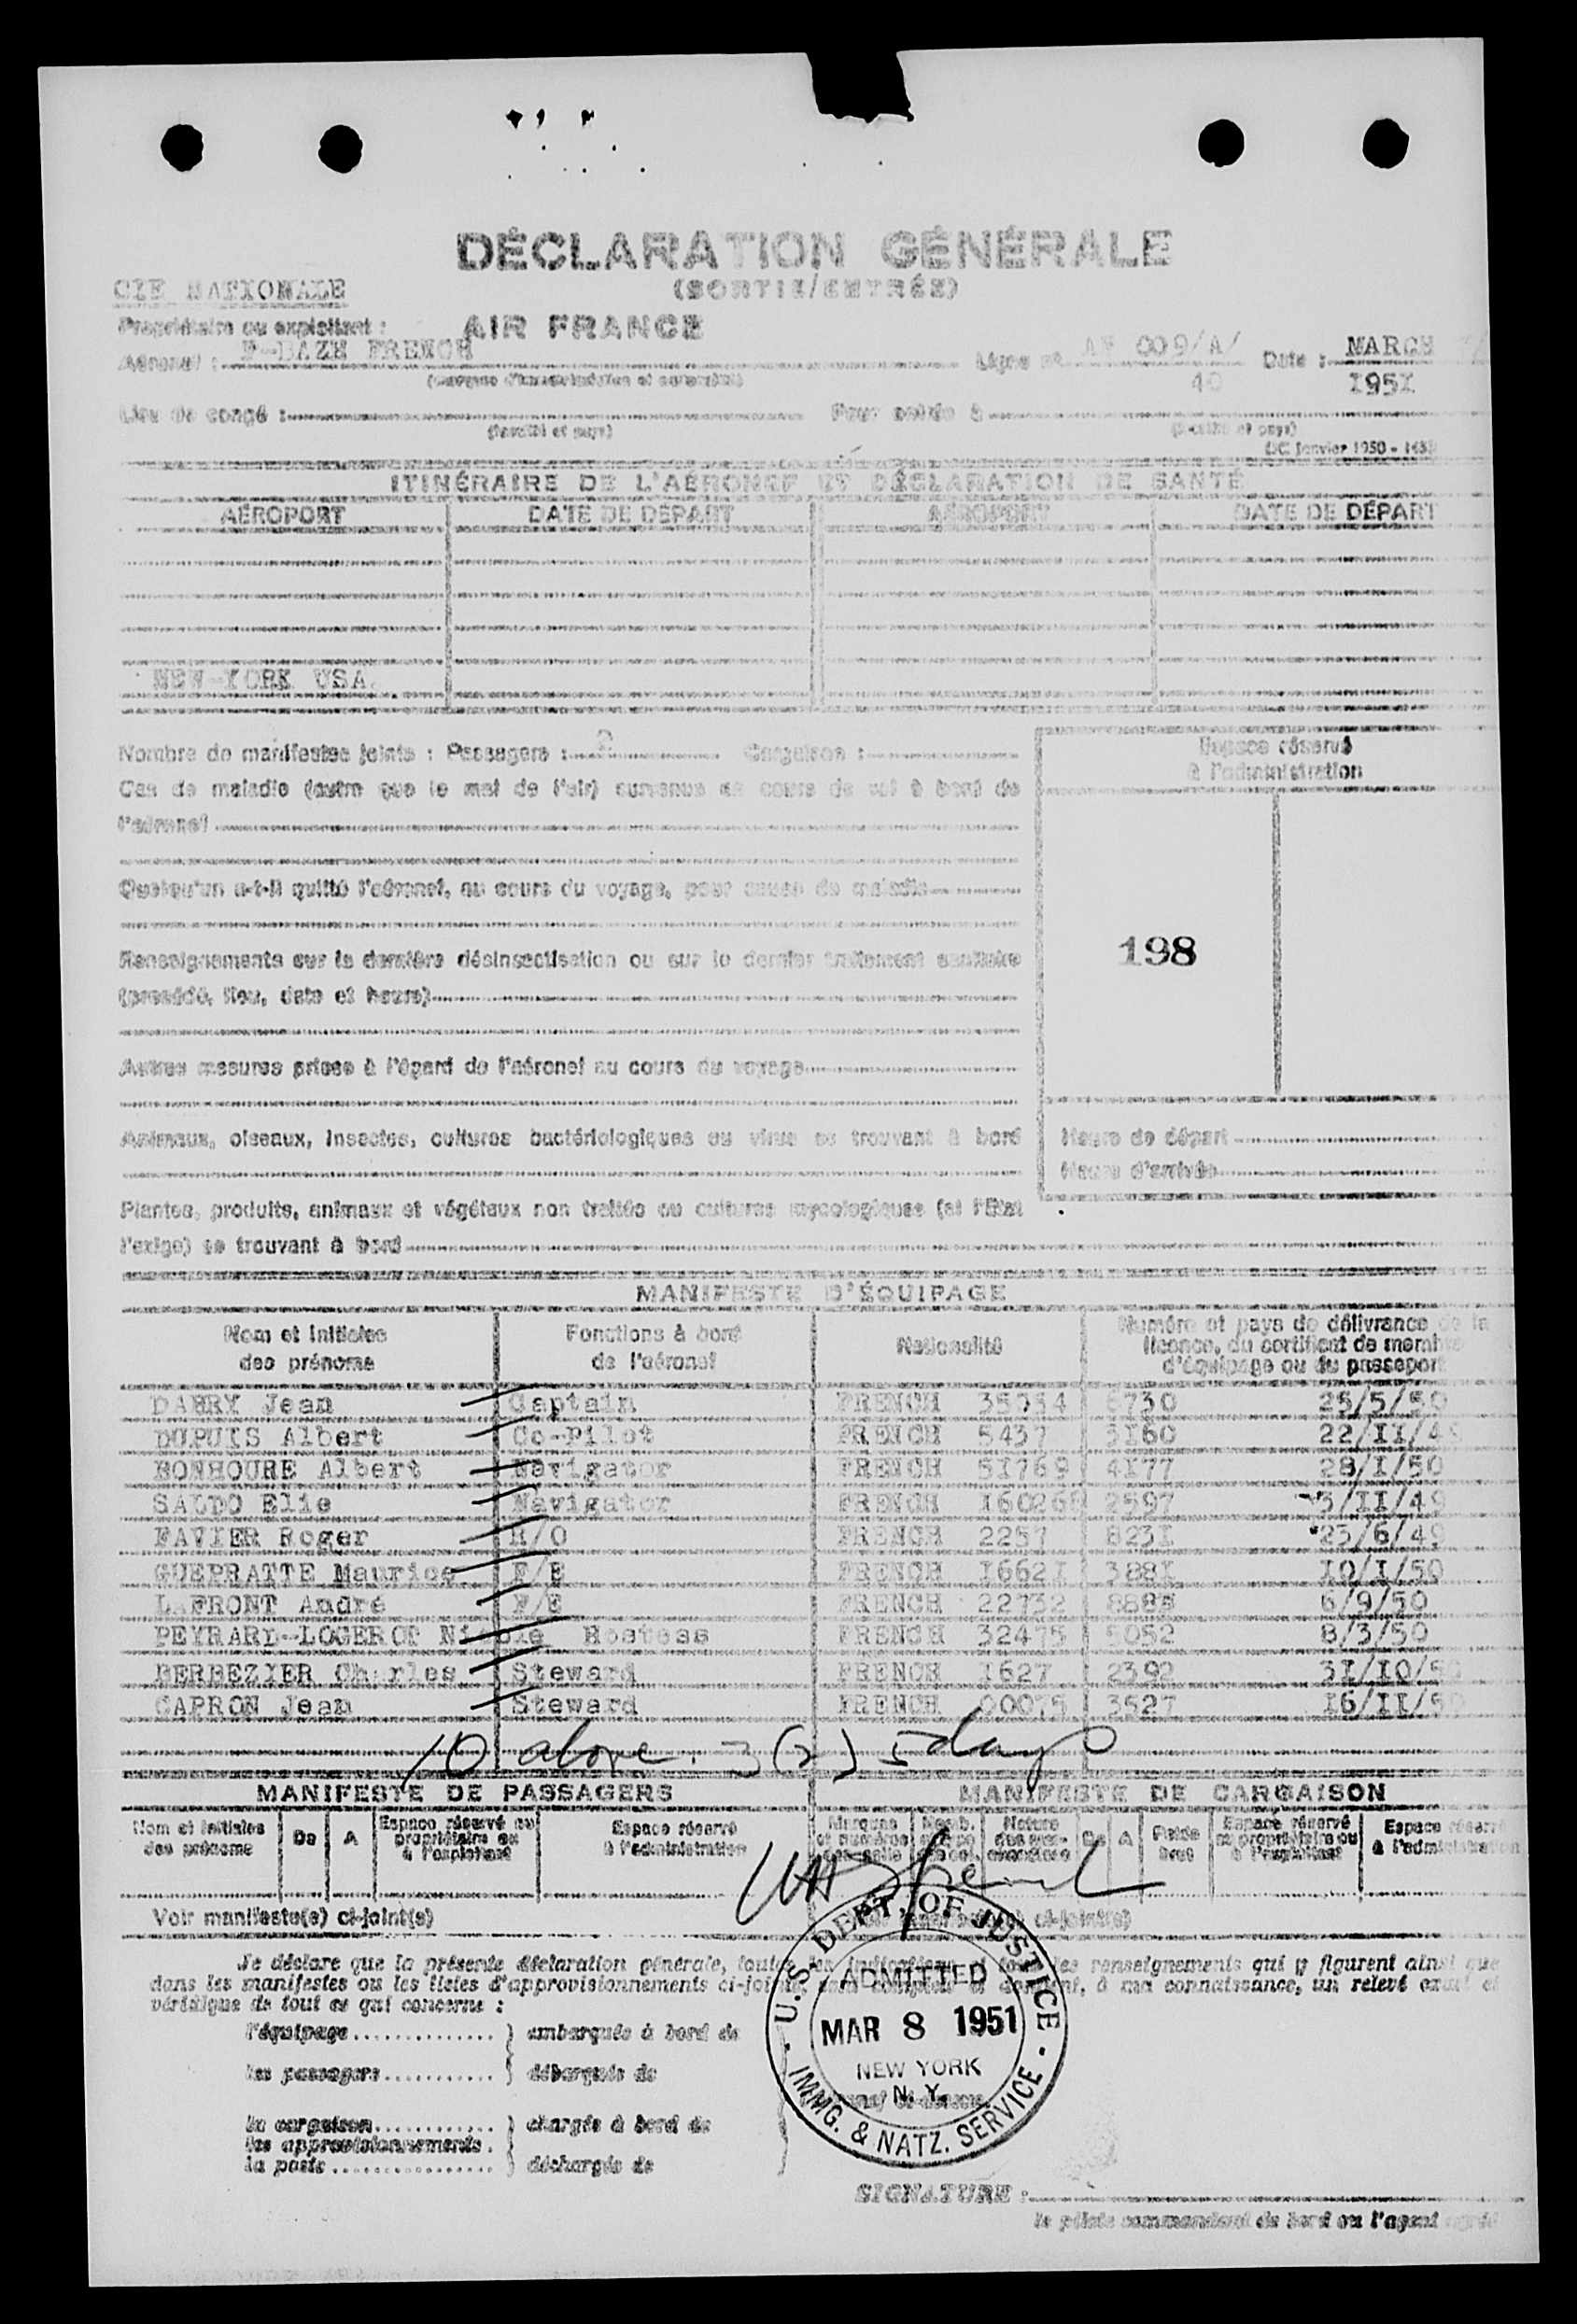 DÉCLARATION GÉNÉRALE
(SORTIE/ENTRÉE)
CIE NATIONALE
Propriétaire ou exploitant : AIR FRANCE
Aéronef : F-BAZH FRENCH
Ligne n° AF 009/A/ Date : MARCH
40 1951
Lieu de congé : Pour entrée à
(localité et pays) (localité et pays)
DC Janvier 1950 -
ITINÉRAIRE DE L'AÉRONEF ET DÉCLARATION DE SANTÉ
AÉROPORT DATE DE DÉPART AÉROPORT DATE DE DÉPART
NEW-YORK USA.
Nombre de manifestes joints : Passagers : 2 Cargaison :
Espace réservé
à l'administration
Cas de maladie (autre que le mal de l'air) survenus au cours de vol à bord de
l'aéronef
Quelqu'un a-t-il quitté l'aéronef, au cours du voyage, pour cause de maladie
198
Renseignements sur la dernière désinsectisation ou sur le dernier traitement sanitaire
(procédé, lieu, date et heure)
Autres mesures prises à l'égard de l'aéronef au cours du voyage
Animaux, oiseaux, insectes, cultures bactériologiques ou virus se trouvant à bord
Heure de départ
Heure d'arrivée
Plantes, produits, animaux et végétaux non traités ou cultures mycologiques (si l'Etat
l'exige) se trouvant à bord
MANIFESTE D'ÉQUIPAGE
Nom et initiales
des prénoms
Fonctions à bord
de l'aéronef
Nationalité
Numéro et pays de délivrance de la
licence, du certificat de membre
d'équipage ou du passeport
DABRY Jean Captain FRENCH 35034 6730 25/5/50
DUPUIS Albert Co-Pilot FRENCH 5437 3160 22/II/49
BONHOURE Albert Navigator FRENCH 51769 4177 28/I/50
SALTO Elie Navigator FRENCH 160268 2597 3/II/49
FAVIER Roger R/O FRENCH 2257 8231 23/6/49
GUEPRATTE Maurice F/E FRENCH I662I 388I I0/I/50
LAFRONT André F/E FRENCH 22732 8885 6/9/50
PEYRARD-LOGEROT Nicole Hostess FRENCH 32475 5052 8/3/50
BERBEZIER Charles Steward FRENCH I627 2392 3I/I0/50
CAPRON Jean Steward FRENCH 00075 3527 I6/II/50
10 above. 3(2) 5 days
MANIFESTE DE PASSAGERS MANIFESTE DE CARGAISON
Nom et initiales
des prénoms
De A
Espace réservé au
propriétaire ou
à l'exploitant
Espace réservé
à l'administration
Marques
et numéros
Nature
des mar-
chandises
De A
Poids
brut
Espace réservé
au propriétaire ou
à l'exploitant
Espace réservé
à l'administration
Voir manifeste(s) ci-joint(s) ci-joint(s)
Je déclare que la présente déclaration générale, toutes les indications renseignements qui y figurent ainsi que
dans les manifestes ou les listes d'approvisionnements ci-joints, à ma connaissance, un relevé exact et
véridique de tout ce qui concerne :
l'équipage embarqués à bord de
les passagers débarqués de
la cargaison chargés à bord de
les approvisionnements
la poste déchargés de
U.S. DEPT. OF JUSTICE
ADMITTED
MAR 8 1951
NEW YORK
N. Y.
IMMG. & NATZ. SERVICE
SIGNATURE :
le pilote commandant de bord ou l'agent agréé